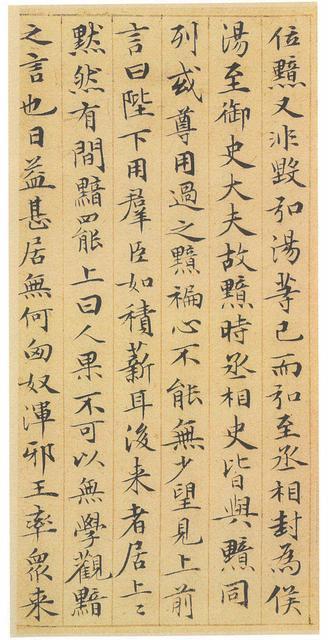 位黯又非毀弘湯等已而弘至丞相封為侯
湯至御史大夫故黯時丞相史皆與黯同
列或尊用過之黯褊心不能無少望見上前
言曰陛下用羣臣如積薪耳後来者居上〻
默然有間黯罷上曰人果不可以無學觀黯
之言也日益甚居無何匈奴渾邪王率衆来